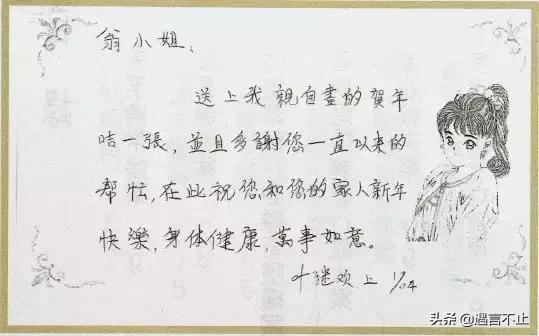 翁小姐：
送上我親自畫的賀年
咭一張，並且多謝您一直以來的
幫忙，在此祝您和您的家人新年
快樂，身体健康 萬事如意。
叶继欢 上 1/04
头条 @遇言不止